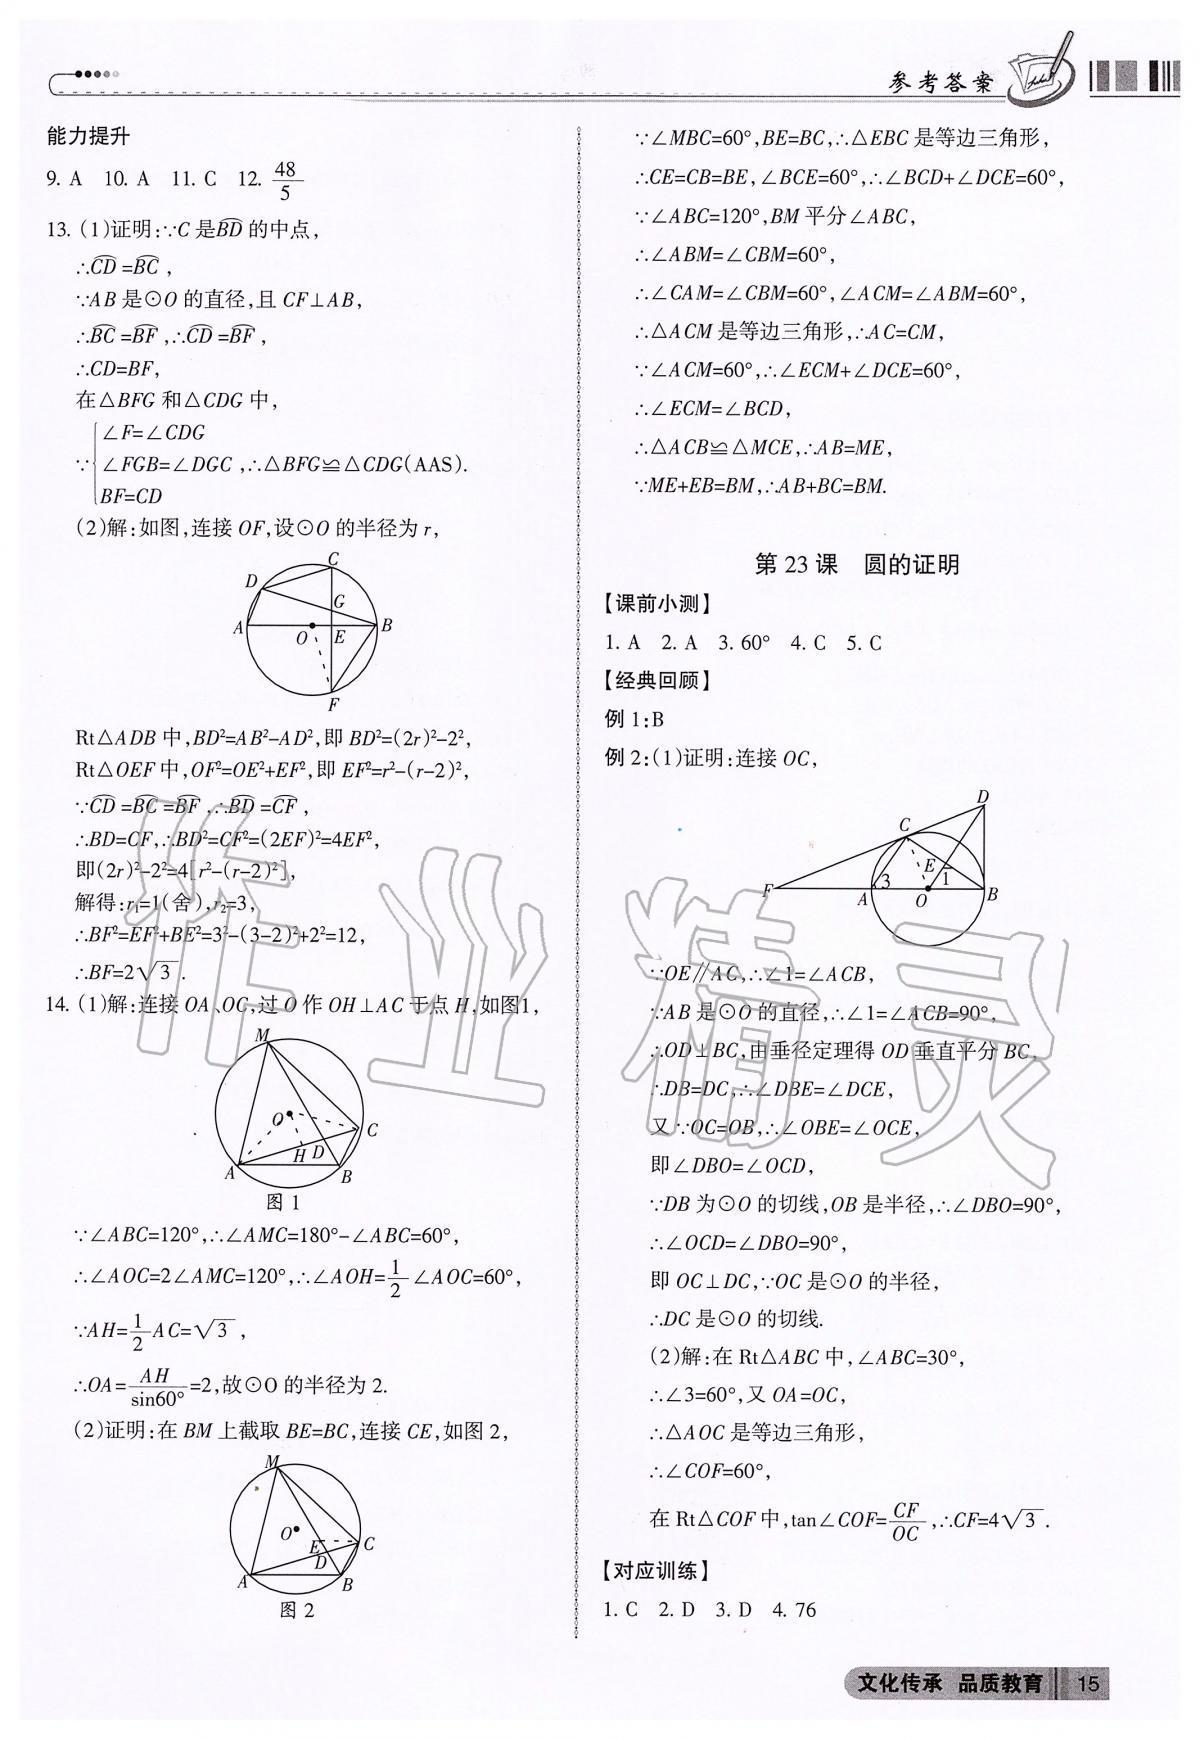 参考答案
能力提升
9. A 10. A 11. C 12. 48/5
13. (1)证明:∵C是B͡D的中点,
∴C͡D=B͡C,
∵AB是⊙O的直径,且CF⊥AB,
∴B͡C=B͡F,∴C͡D=B͡F,
∴CD=BF,
在△BFG和△CDG中,
∠F=∠CDG
∵ ∠FGB=∠DGC,∴△BFG≌△CDG(AAS).
BF=CD
(2)解:如图,连接OF,设⊙O的半径为r,
C
D
G
A O E B
F
Rt△ADB中,BD²=AB²-AD²,即BD²=(2r)²-2²,
Rt△OEF中,OF²=OE²+EF²,即EF²=r²-(r-2)²,
∵C͡D=B͡C=B͡F,∴B͡D=C͡F,
∴BD=CF,∴BD²=CF²=(2EF)²=4EF²,
即(2r)²-2²=4[r²-(r-2)²],
解得:r₁=1(舍),r₂=3,
∴BF²=EF²+BE²=3²-(3-2)²+2²=12,
∴BF=2√3.
14. (1)解:连接OA、OC,过O作OH⊥AC于点H,如图1,
M
O
C
H D
A B
图1
∵∠ABC=120°,∴∠AMC=180°-∠ABC=60°,
∴∠AOC=2∠AMC=120°,∴∠AOH=1/2∠AOC=60°,
∵AH=1/2AC=√3,
∴OA=AH/sin60°=2,故⊙O的半径为2.
(2)证明:在BM上截取BE=BC,连接CE,如图2,
M
O
E C
D
A B
图2
∵∠MBC=60°,BE=BC,∴△EBC是等边三角形,
∴CE=CB=BE,∠BCE=60°,∴∠BCD+∠DCE=60°,
∵∠ABC=120°,BM平分∠ABC,
∴∠ABM=∠CBM=60°,
∴∠CAM=∠CBM=60°,∠ACM=∠ABM=60°,
∴△ACM是等边三角形,∴AC=CM,
∵∠ACM=60°,∴∠ECM+∠DCE=60°,
∴∠ECM=∠BCD,
∴△ACB≌△MCE,∴AB=ME,
∵ME+EB=BM,∴AB+BC=BM.
第23课 圆的证明
【课前小测】
1. A 2. A 3. 60° 4. C 5. C
【经典回顾】
例1:B
例2:(1)证明:连接OC,
D
C
E
F A 3 O 1 B
∵OE∥AC,∴∠1=∠ACB,
∵AB是⊙O的直径,∴∠1=∠ACB=90°,
∴OD⊥BC,由垂径定理得OD垂直平分BC,
∴DB=DC,∴∠DBE=∠DCE,
又∵OC=OB,∴∠OBE=∠OCE,
即∠DBO=∠OCD,
∵DB为⊙O的切线,OB是半径,∴∠DBO=90°,
∴∠OCD=∠DBO=90°,
即OC⊥DC,∵OC是⊙O的半径,
∴DC是⊙O的切线.
(2)解:在Rt△ABC中,∠ABC=30°,
∴∠3=60°,又OA=OC,
∴△AOC是等边三角形,
∴∠COF=60°,
在Rt△COF中,tan∠COF=CF/OC,∴CF=4√3.
【对应训练】
1. C 2. D 3. D 4. 76
文化传承 品质教育 15
作业精灵